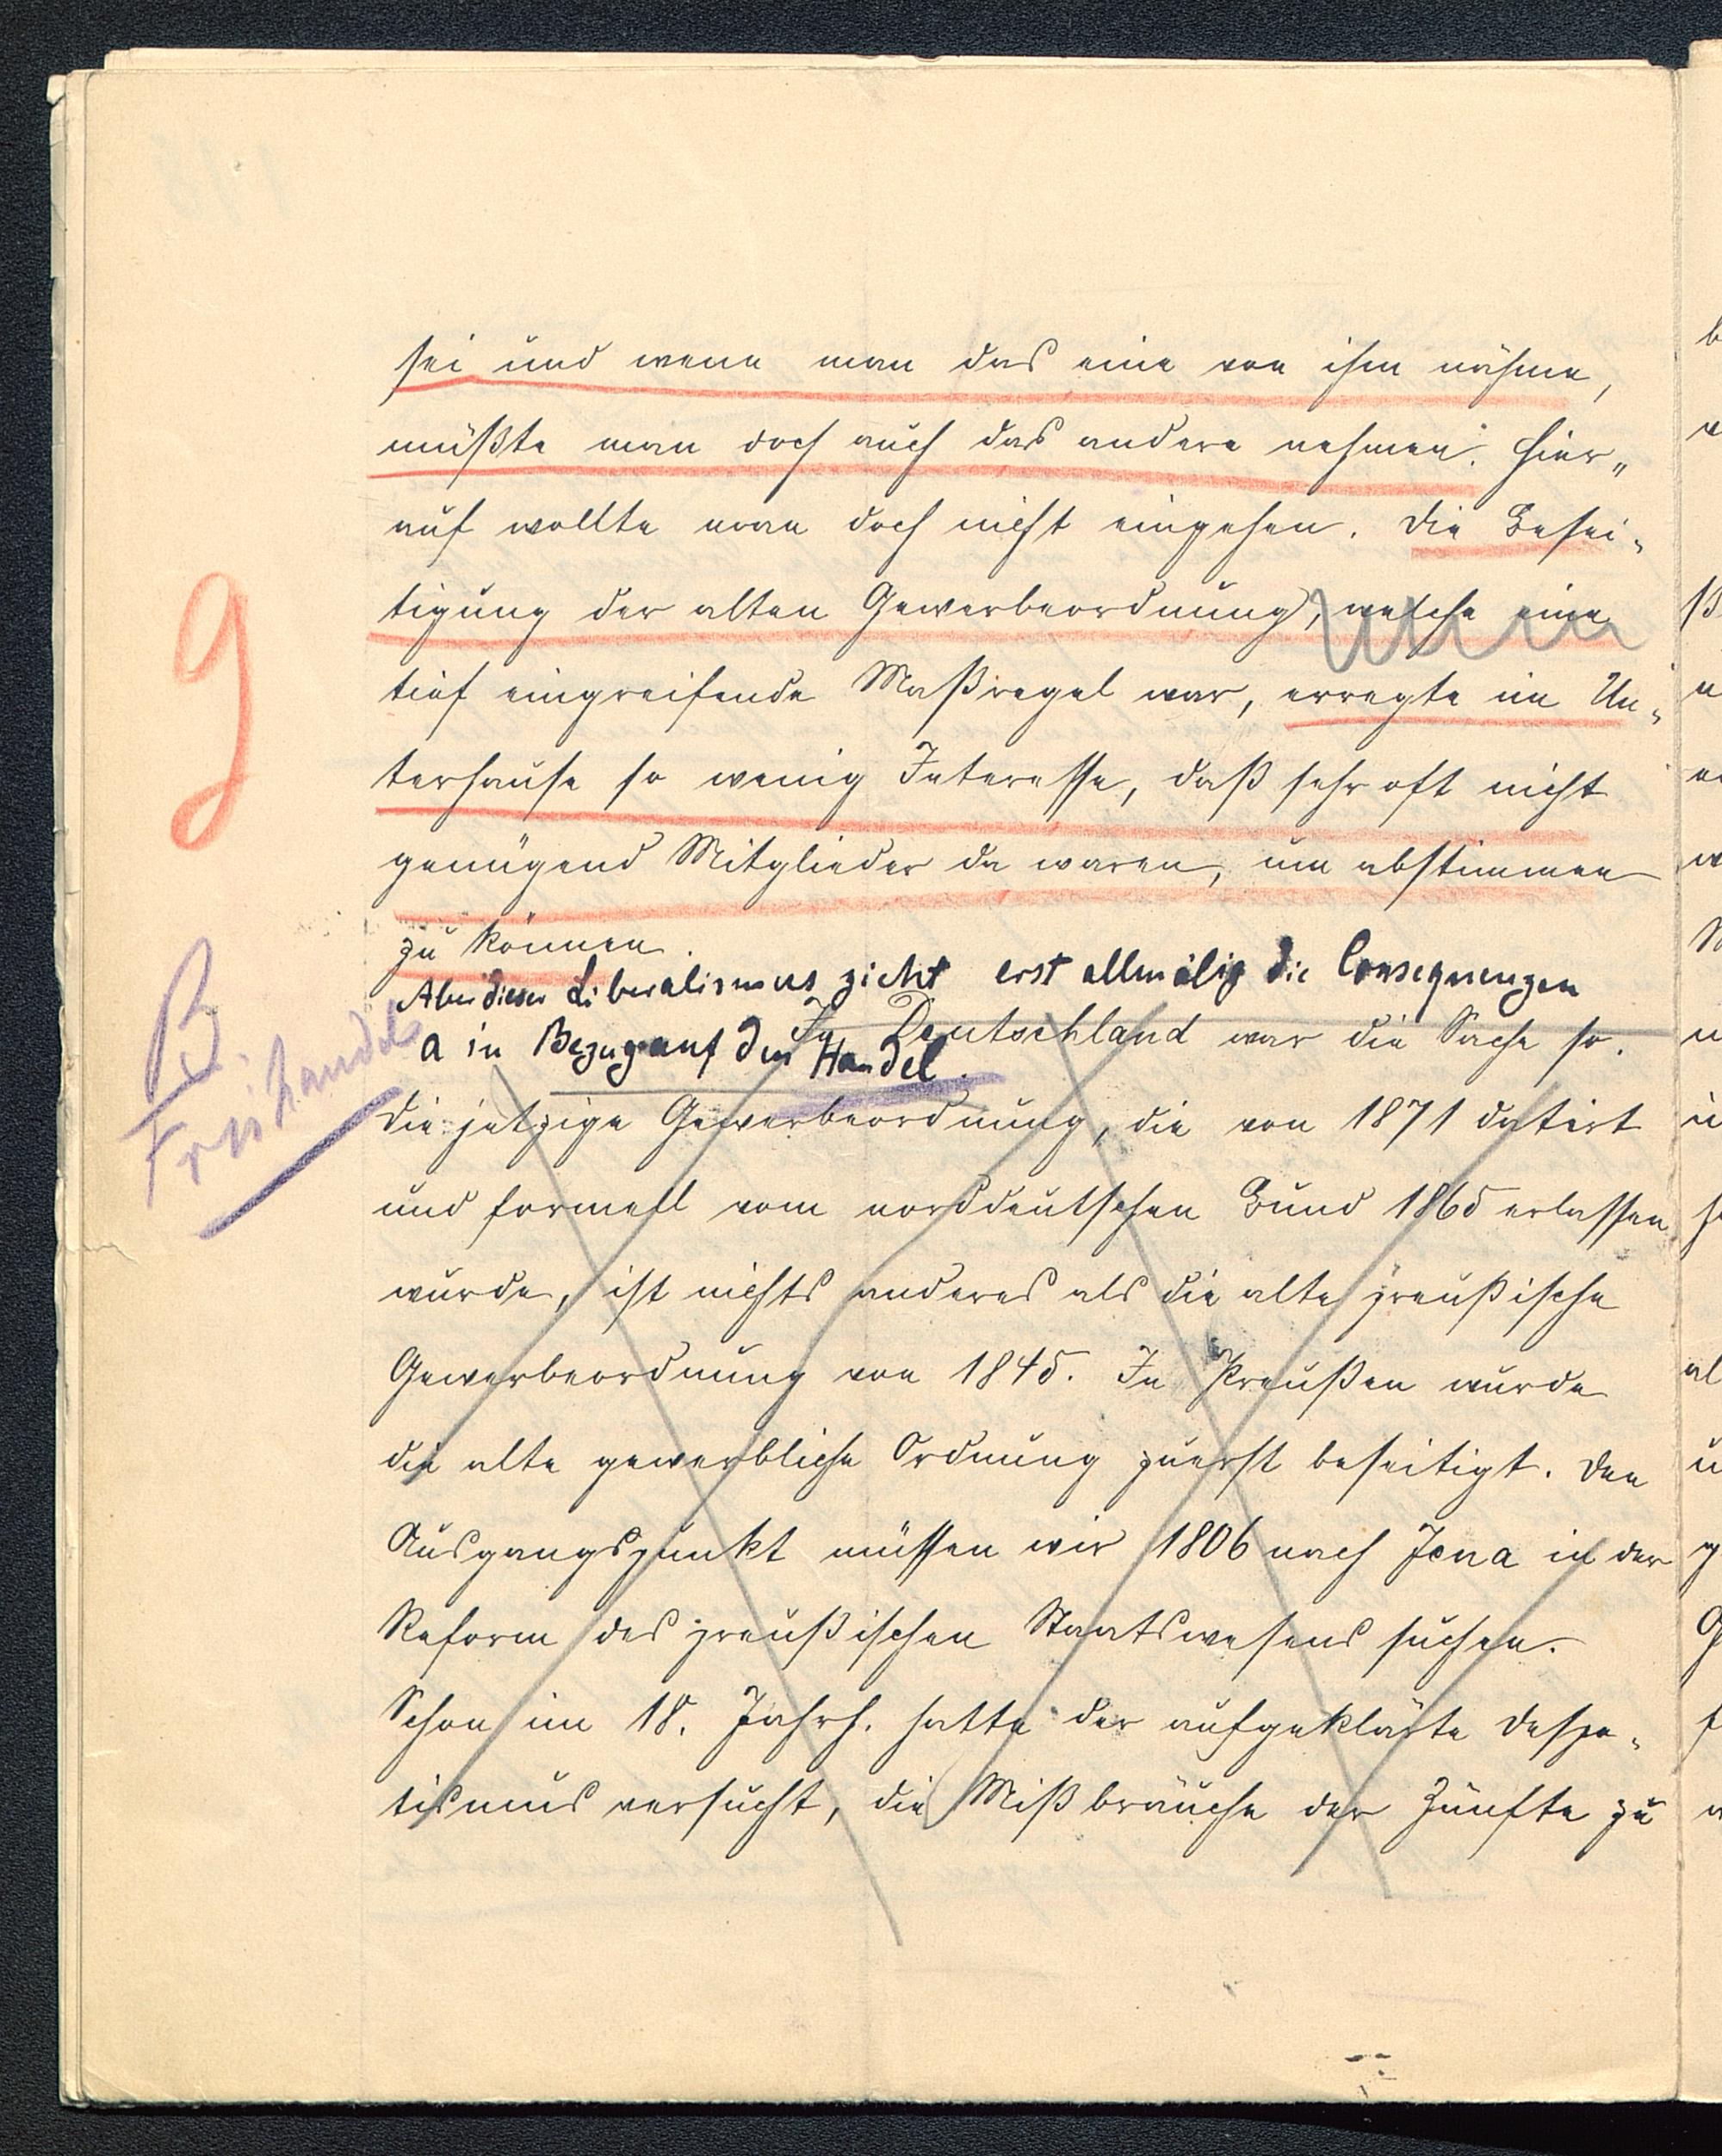 sei und wenn man das eine von ihm nähme,
müßte man doch auch das andere nehmen. Hier„
auf wollte man doch nicht eingehen. Die Besei-
tigung der alten Gewerbeordnung, welche eine
tief eingreifende Maßregel war, erregte im Un-
terhause so wenig Interesse, daß sehr oft nicht
genügend Mitglieder da waren, um abstimmen
zu können.
Aber dieser Liberalismus zieht erst allmälig die Consequenzen
a in Bezug auf den Handel.
B.
Freihandel
g
In Deutschland war die Sache so.
Die jetzige Gewerbeordnung, die von 1871 datirt
und formell vom norddeutschen Bund erlassen
wurde, ist nichts anderes als die alte preußische
Gewerbeordnung von 1845. In Preußen wurde
die alte gewerbliche Ordnung zuerst beseitigt. Den
Ausgangspunkt müssen wir 1806 nach Jena in der
Reform des preußischen Staatswesens suchen.
Schon im 18. Jahrh. hatte der aufgeklärte Despo-
tismus versucht, die Mißbräuche der Zünfte zu